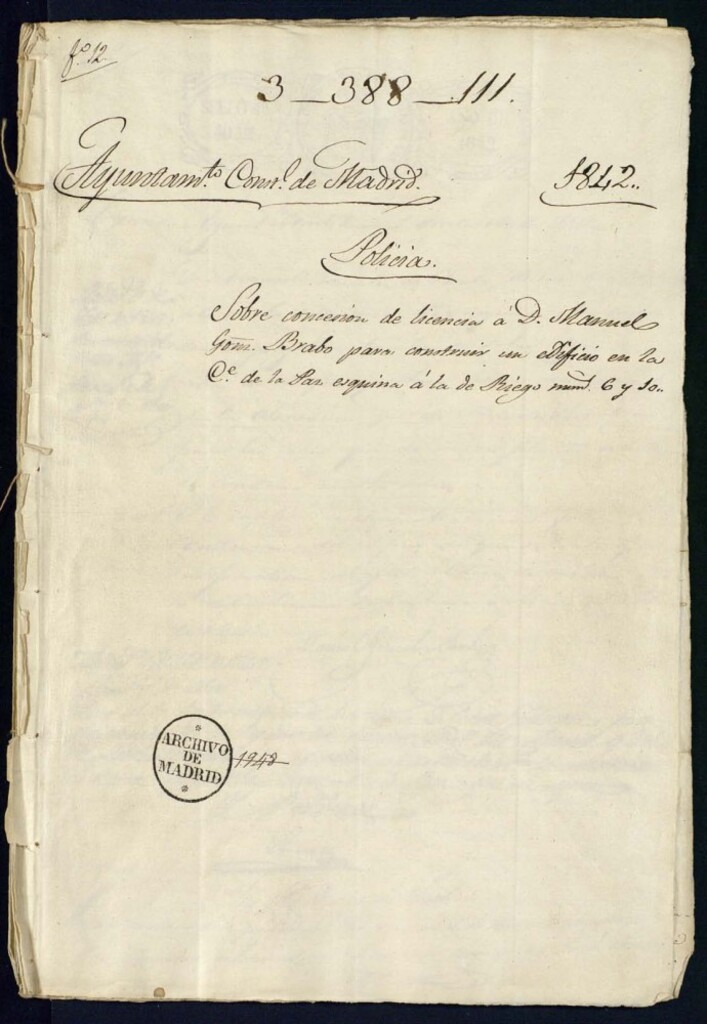 fo. 12
3-388-111.
Ayuntamto. Consl. de Madrid. 1842..
Policia.
Sobre concesion de licencia á D. Manuel
Gonz. Brabo para construir un edificio en la
Ce. de la Paz esquina á la de Riego num. 6 y 10..
ARCHIVO
DE
MADRID